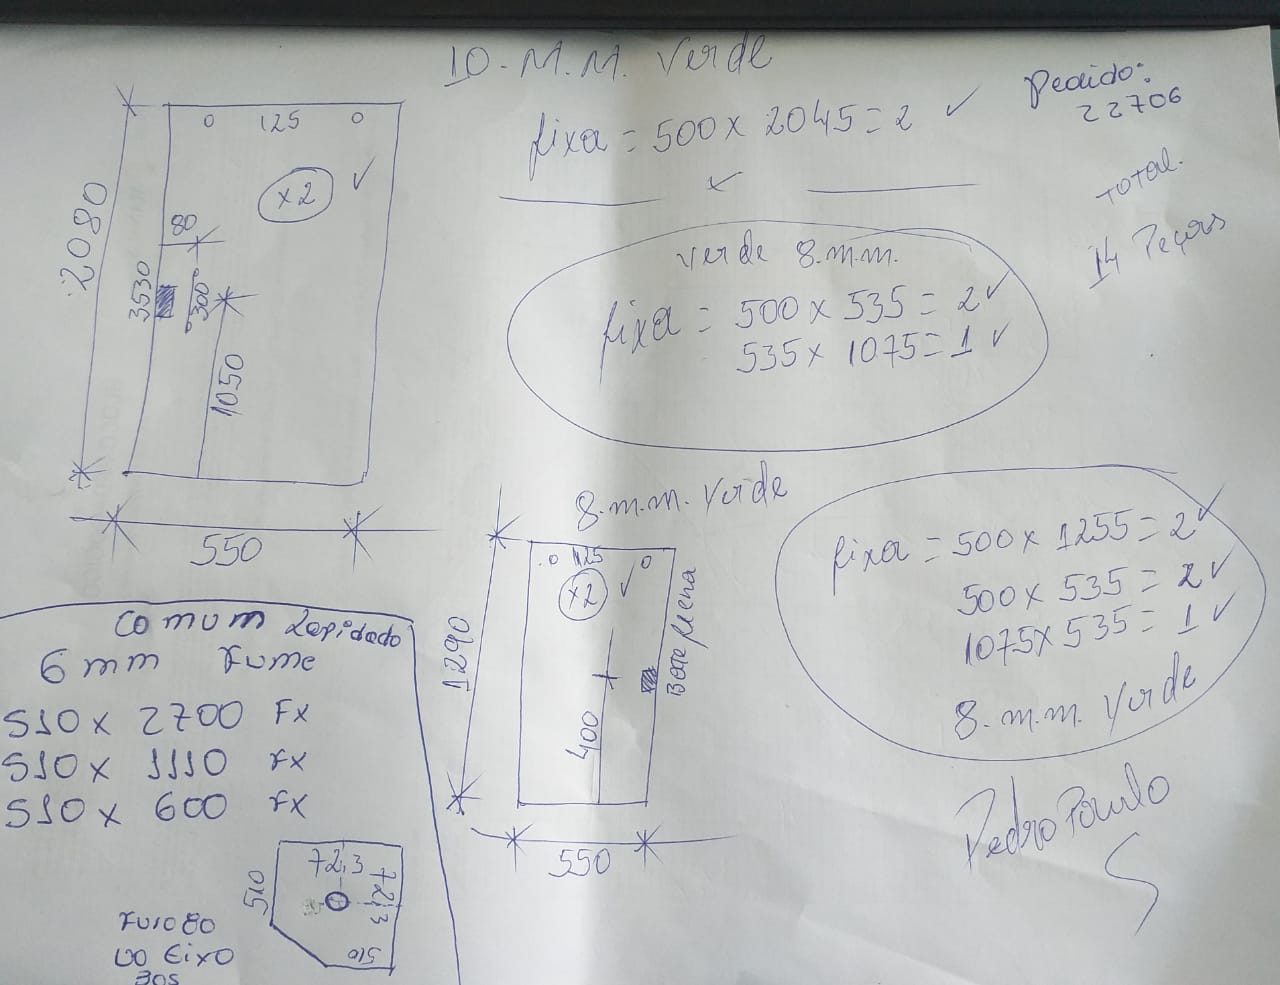 10.M.M. Verde
Pedido:
22706
fixa = 500 x 2045 = 2 ✓
TOTAL.
14 Peças
125
x2 ✓
2080
80
3530
300
1050
550
✓
verde 8.m.m.
fixa = 500 x 535 = 2 ✓
535 x 1075 = 1 ✓
8.m.m. Verde
125
x2 ✓
1290
400
550
fixa = 500 x 1255 = 2 ✓
500 x 535 = 2 ✓
1075 x 535 = 1 ✓
8.m.m. Verde
Pedro Paulo
comum Lapidado
6 mm Fume
510 x 2700 FX
510 x 1110 FX
510 x 600 FX
72,3
72,3
510
510
Furo 80
Do Eixo